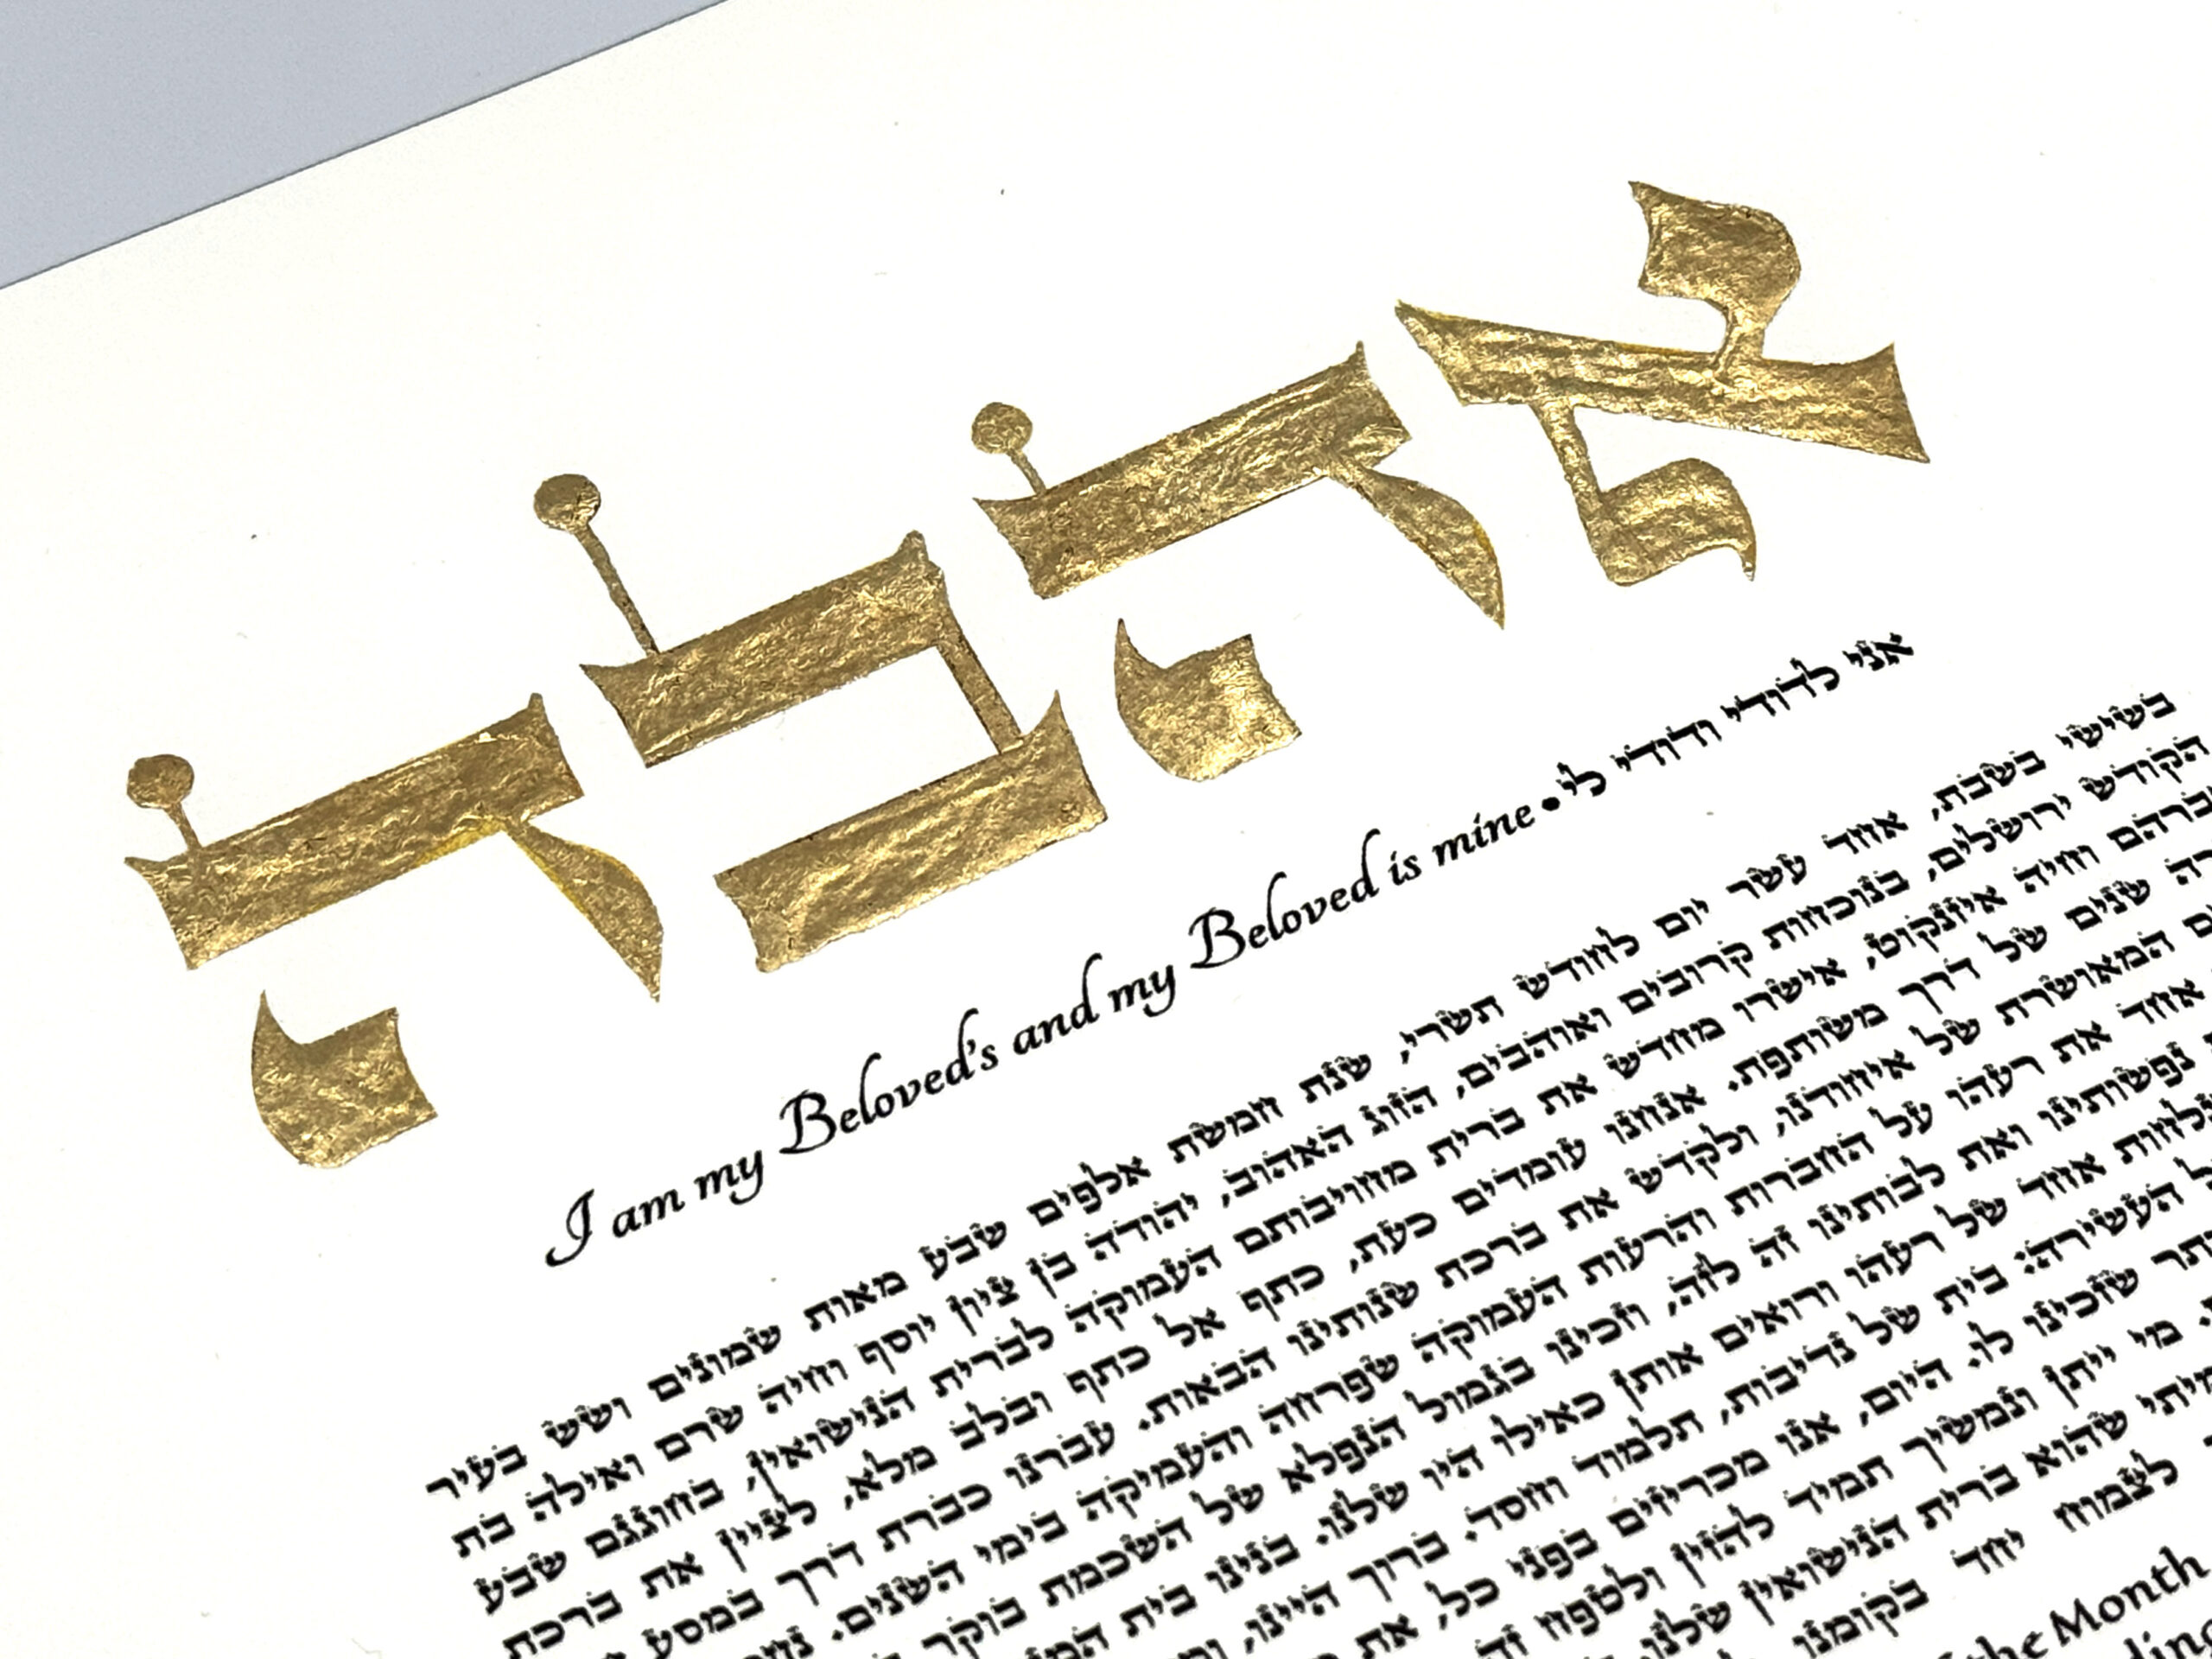 אהבה
אני לדודי ודודי לי • I am my Beloved's and my Beloved is mine
בשישי בשבת, אחד עשר יום לחודש תשרי, שנת חמשת אלפים שבע מאות שמונים ושש בעיר
הקודש ירושלים, בנוכחות קרובים ואוהבים, הזוג האהוב, יהודה בן ציון יוסף וחיה שרם ואילה בת
וחיה איזנקוט, אישרו מחדש את ברית מחויבותם העמוקה לברית הנישואין, בחוגגם שבע
שנים של דרך משותפת. אנחנו עומדים כעת, כתף אל כתף ובלב מלא, לציין את ברכת
המאושרת של איחודנו, ולקדש את ברכת שנותינו הבאות. עברנו כברת דרך במסע
אחד את רעהו על החברות והרעות העמוקה שפרחה והעמיקה בימי השנים.
נפשותינו ואת לבותינו זה לזה, וזכינו בגמול הנפלא של השכמת בוקר
אחד של רעהו ורואים אותן כאילו היו שלנו. בנינו בית
העשירה: בית של נדיבות, תלמוד וחסד. ברוך היינו,
שזכינו לו. היום, אנו מכריזים בפני כל, את
מי ייתן ונמשיך תמיד להזין ולטפח זה
שהוא ברית הנישואין שלנו,
לצמוח יחד בקומנו
the Month